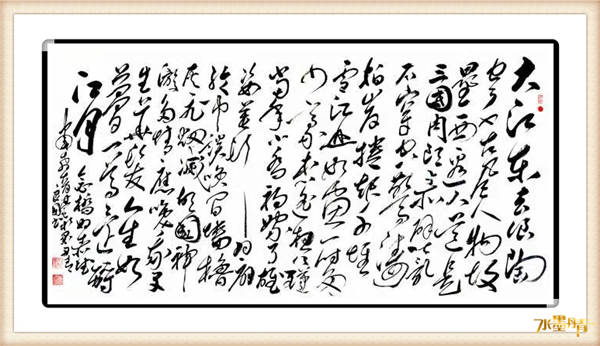 大江東去浪陶
尽千古风流人物故
壘西边人道是
三國周郎赤壁乱
石穿空惊涛
拍岸捲起千堆
雪江山如画一时多
少豪杰遥想公瑾
当年小乔初嫁了雄
姿英发——羽扇
纶巾谈笑间墙橹
灰飞烟灭故國神
游多情应笑我早
生华发人生如
梦一尊还酹
江月
水墨丹青